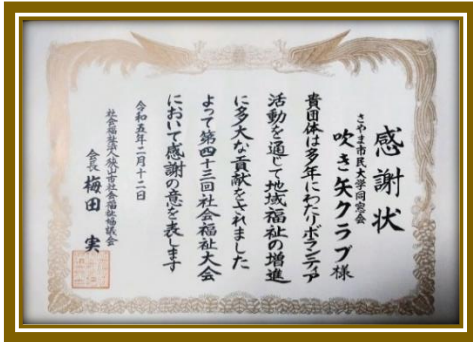 感謝状
さやま市民大学同窓会
吹き矢クラブ様
貴団体は多年にわたりボランティア
活動を通じて地域福祉の増進
に多大な貢献をされました
よって第四十三回社会福祉大会
において感謝の意を表します
令和五年二月十二日
社会福祉法人狭山市社会福祉協議会
会長 梅田 実